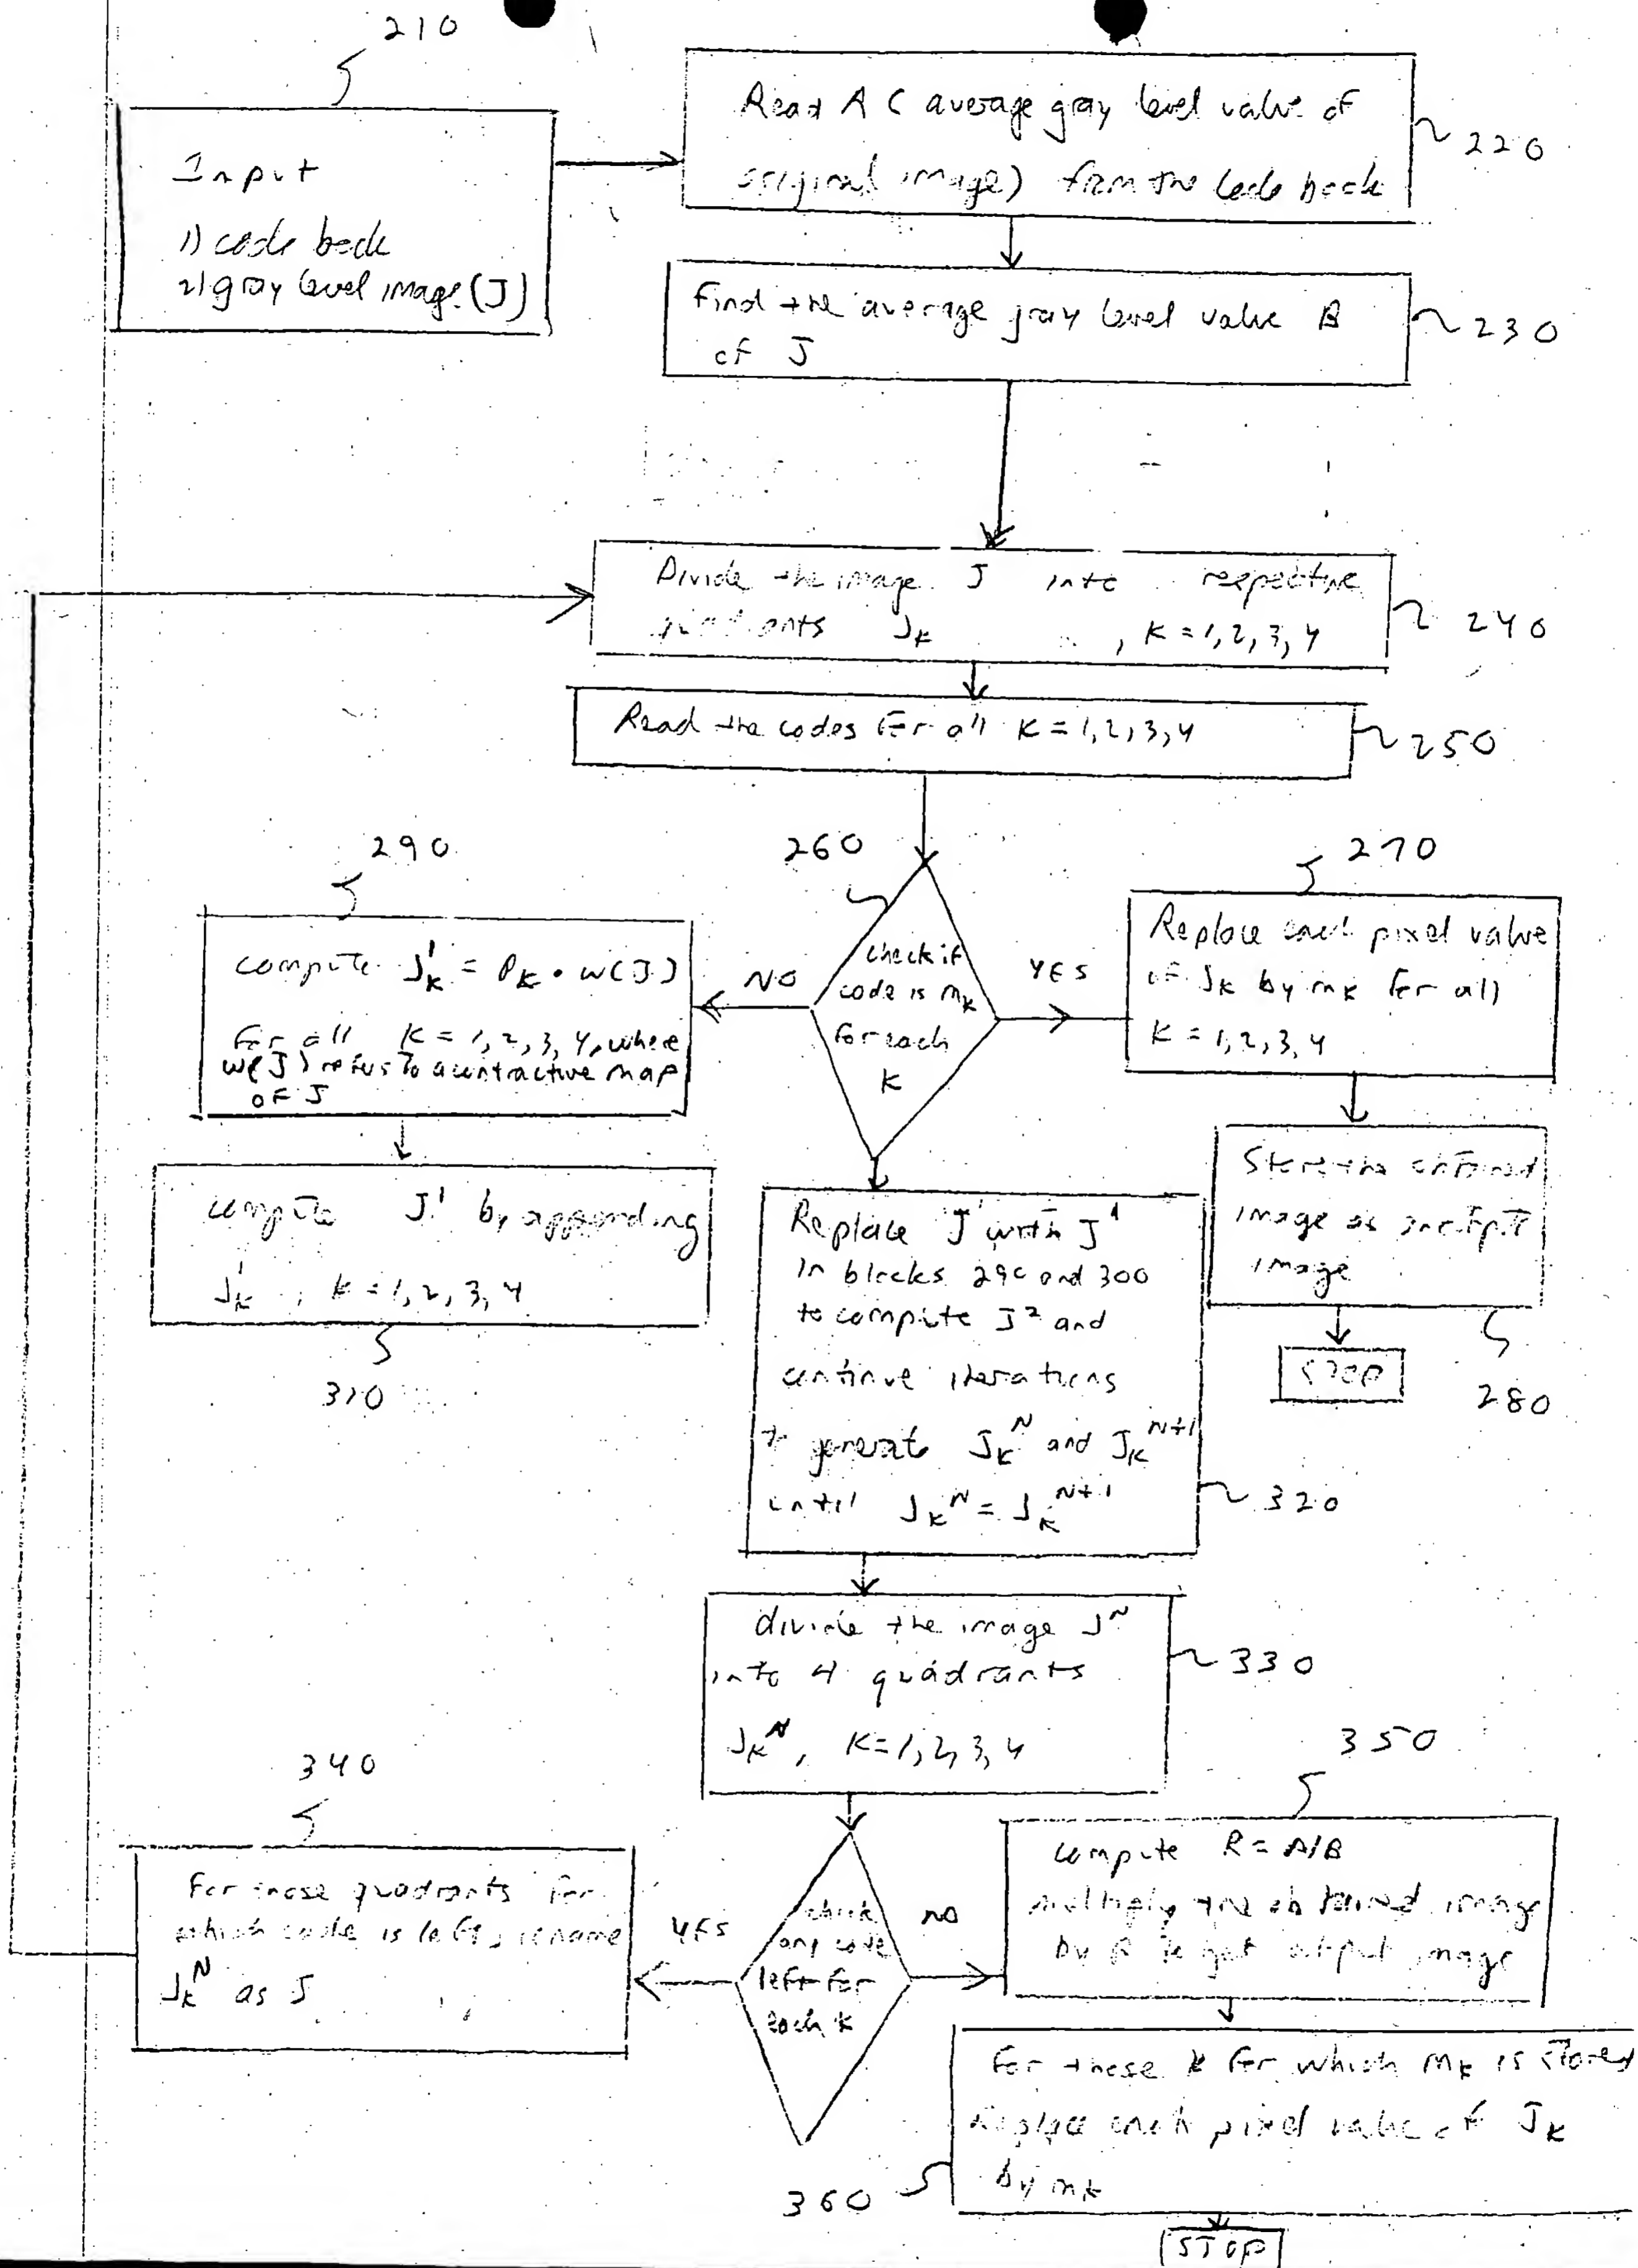 210
Input
1) code book
2) gray level image (J)
Read A ( average gray level value of
original image) from the code book
220
Find the average gray level value B
of J
230
Divide the image J into respective
quadrants Jk , K = 1, 2, 3, 4
240
Read the codes for all K = 1, 2, 3, 4
250
260
check if
code is mk
for each
K
NO
YES
290
compute J¹k = Pk • w(J)
for all K = 1, 2, 3, 4, where
w(J) refers to a contractive map
of J
compute J¹ by appending
J¹k , K = 1, 2, 3, 4
310
270
Replace each pixel value
of Jk by mk for all
K = 1, 2, 3, 4
Store the obtained
image as
image
280
STOP
Replace J with J¹
in blocks 290 and 300
to compute J² and
continue iterations
to generate Jk^N and Jk^N+1
until Jk^N = Jk^N+1
320
divide the image J^N
into 4 quadrants
Jk^N, K=1, 2, 3, 4
330
340
For those quadrants for
which code is left, rename
Jk^N as J
YES
check
any code
left for
each k
NO
350
compute R = A/B
multiply the obtained image
by R to get output image
For those k for which mk is stored
Replace each pixel value of Jk
by mk
360
STOP